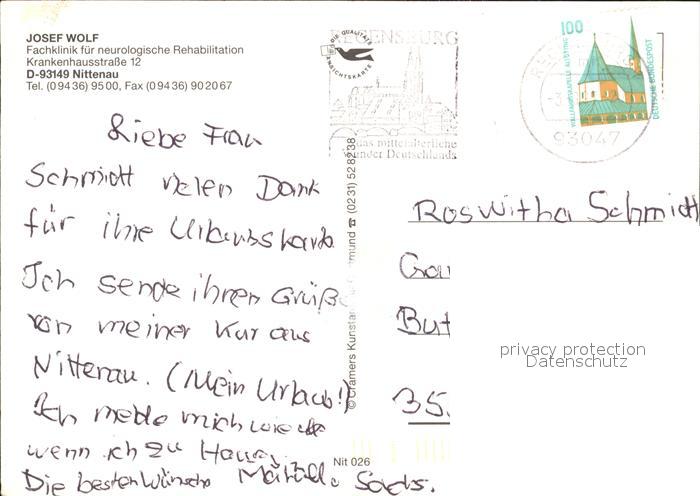 JOSEF WOLF
Fachklinik für neurologische Rehabilitation
Krankenhausstraße 12
D-93149 Nittenau
Tel. (09436) 9500, Fax (09436) 902067
Liebe Frau
Schmidt vielen Dank
für ihre Urlaubskarte
Ich sende ihnen Grüße
von meiner Kur aus
Nittenau. (Mein Urlaub!)
Ich melde mich wieder
wenn ich zu Hause
Die besten Wünsche
REGENSBURG
das mittelalterliche
Wunder Deutschlands
DIE QUALITÄTS
ANSICHTSKARTE
100
WALLFAHRTSKAPELLE ALTÖTTING
DEUTSCHE BUNDESPOST
93047
© Cramers Kunstan mund ☎ (0231) 528238
Roswitha Schmidt
But
35.
privacy protection
Datenschutz
Nit 026